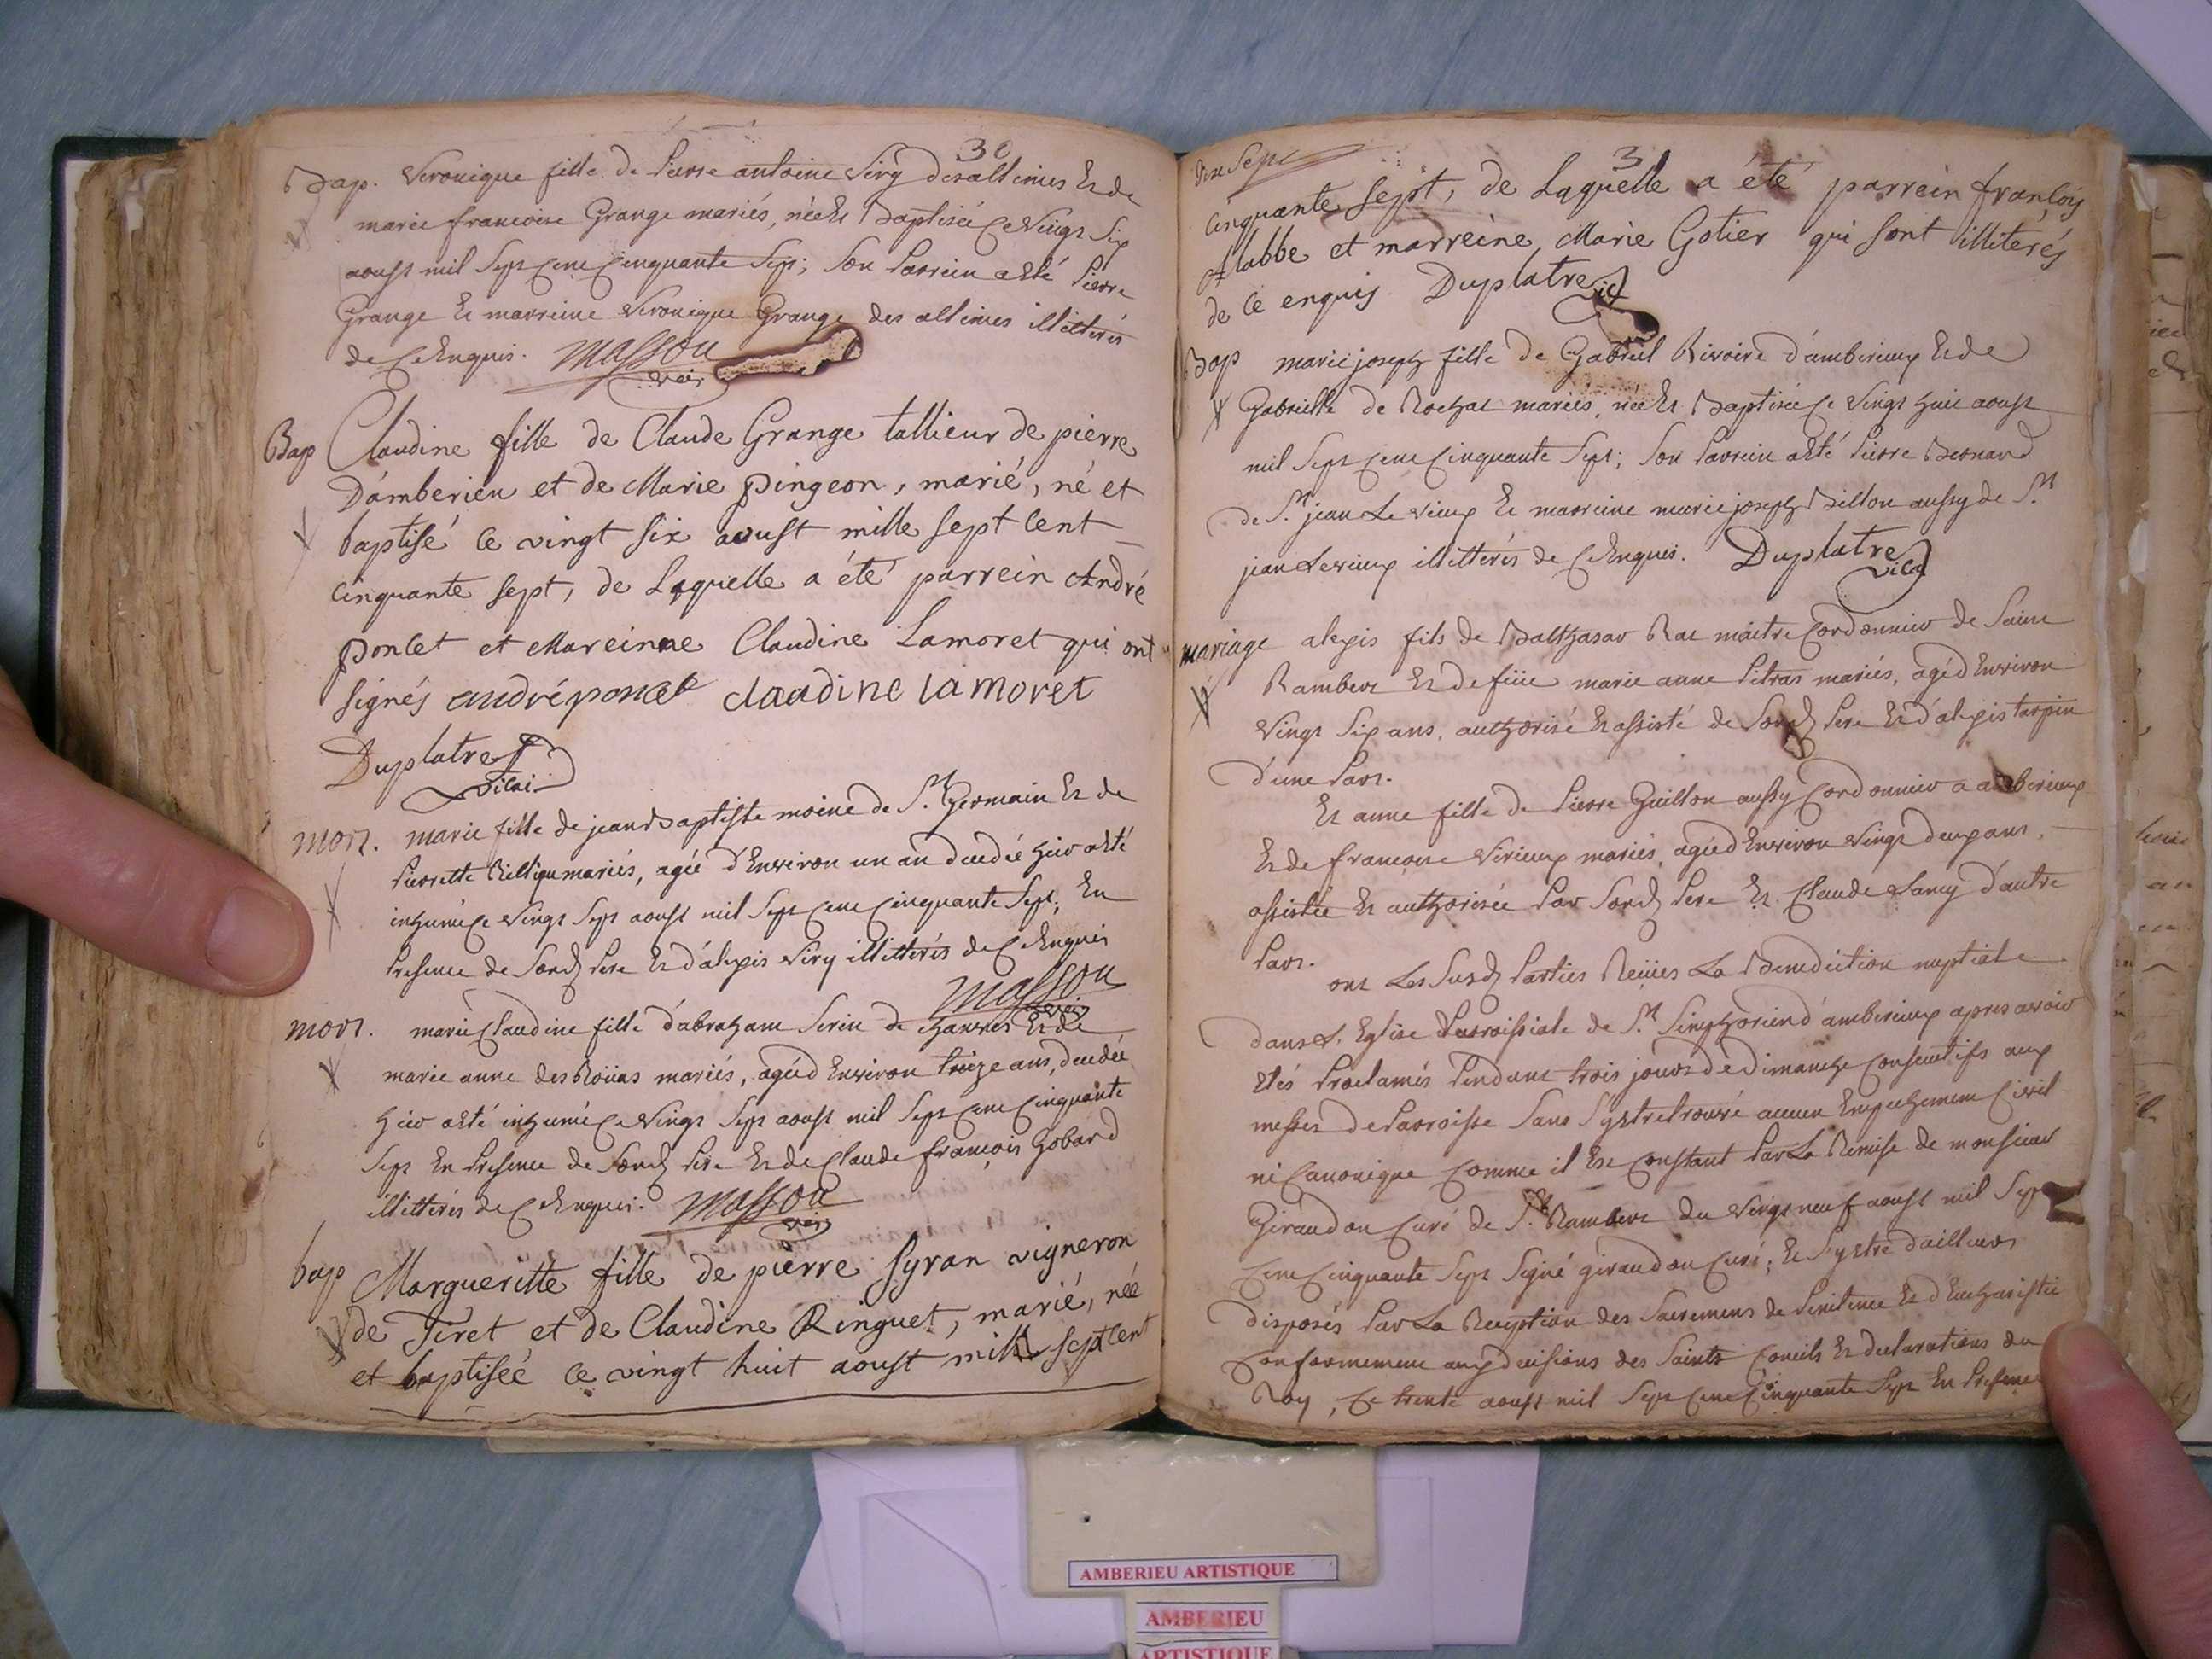 30
Bap. Veronique fille de Pierre antoine Siry des allimes Et de
marie francoise Grange mariés, née Et Baptisée Ce Vingt Six
aoust mil Sept Cent Cinquante Sept; Son Parrein a Eté Pierre
Grange Et marreine Veronique Grange des allimes illitterés
de Ce Enquis. Masson
vic
Bap Claudine fille de Claude Grange tallieur de pierre
D'amberieu et de Marie pingeon, marié, né et
baptisé ce vingt six aoust mille sept cent
cinquante sept, de Laquelle a été parrein André
poncet et Mareinne Claudine Lamoret qui ont
signés andré poncet claudine lamoret
Duplatre
vicai
mort. marie fille de jean Baptiste moine de St Germain Et de
Pierrette mariés, agée d'Environ un an decedée hier a Eté
inhumé Ce Vingt Sept aoust mil Sept Cent Cinquante Sept, En
Presence de Sond Pere Et d'alexis Siry illitterés de Ce Enquis
Masson
vic
mort. marie Claudine fille d'abraham Serin de Et de
marie anne des mariés, agée d Environ treize ans, decedée
hier a eté inhumé Ce Vingt Sept aoust mil Sept Cent Cinquante
Sept En Presence de Sond Pere Et de Claude françois Gobard
illitterés de Ce Enquis. Masson
vic
bap Margueritte fille de pierre Syran vigneron
de Tiret et de Claudine Ringuet, marié, née
et baptiséé ce vingt huit aoust mille sept cent
31
dix Sept
cinquante sept, de Laquelle a été parrein françois
Labbe et marreine Marie Gotier qui sont illiterés
de ce enquis Duplatre vic
Bap marie joseph fille de Gabriel Rivoire d'amberieux Et de
Gabrielle de Rochat mariés, née Et Baptisée Ce Vingt huit aoust
mil Sept Cent Cinquante Sept; Son Parrein a Eté Pierre Bernard
de St jean Le vieux Et marreine marie joseph Billon aussy de St
jean Le vieux illitterés de Ce Enquis. Duplatre
vica
mariage alexis fils de Balthasar Rat maitre Cordonnier de Saint
Rambert Et de feüe marie anne Pitras mariés, agé d Environ
Vingt Six ans, authorisé Et assisté de Sond Pere Et d'alexis tarpin
d'une Part.
Et anne fille de Pierre Guillon aussy Cordonnier a amberieux
Et de francoise Virieux mariés, agée d Environ Vingt deux ans,
assistée Et authorisée Par Sond Pere Et Claude Lancy d'autre
Part.
ont Les Susd Parties Reçües La Benediction nuptiale
dans L'Eglise Parroissiale de St Simphorien d'amberieux apres avoir
Etés Proclamés Pendant trois jours de dimanche Consecutifs aux
messes de Parroisse Sans S'y etre trouvé aucun Empechement Civil
ni Canonique Comme il Est Constant Par La Remise de monsieur
Giraudon Curé de St Rambert du Vingt neuf aoust mil Sept
Cent Cinquante Sept Signé giraudon Curé; Et S'y etre d'ailleurs
disposés Par La Reception des Sacremens de Penitence Et d'Eucharistie
Conformement aux decisions des Saints Conciles Et declarations du
Roy, Ce trente aoust mil Sept Cent Cinquante Sept En Presence
AMBERIEU ARTISTIQUE
AMBERIEU
ARTISTIQUE